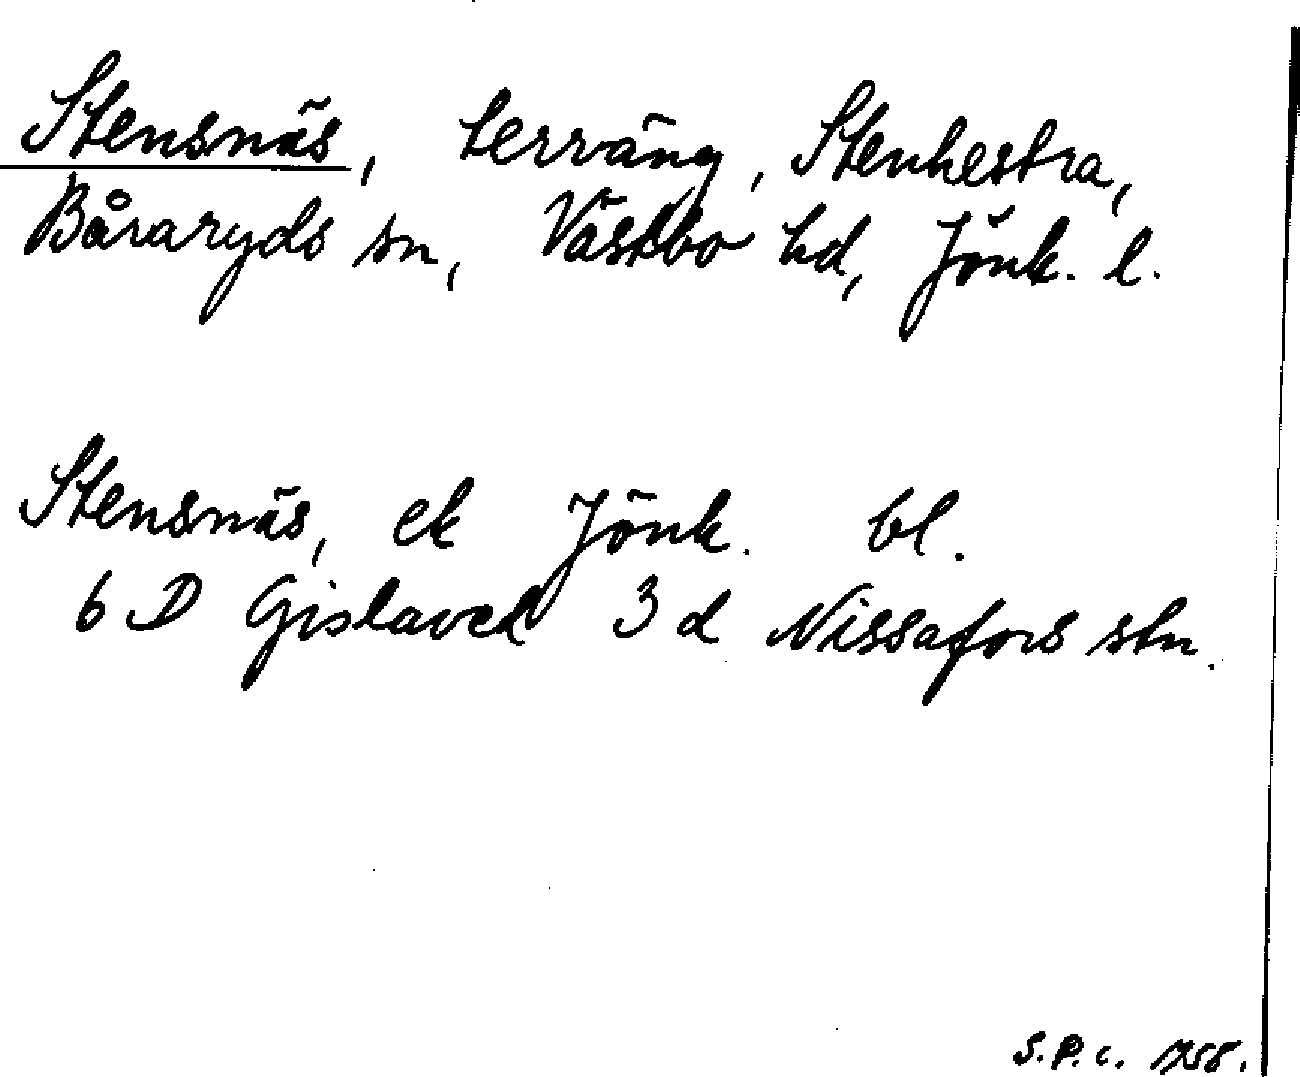 Stensnäs, terräng, Stenhestra,
Båraryds sn, Västbo hd, Jönk. l.
Stensnäs, ek Jönk. bl.
6 D Gislaved 3 d Nissafors stn.
S.P.c. 1958.